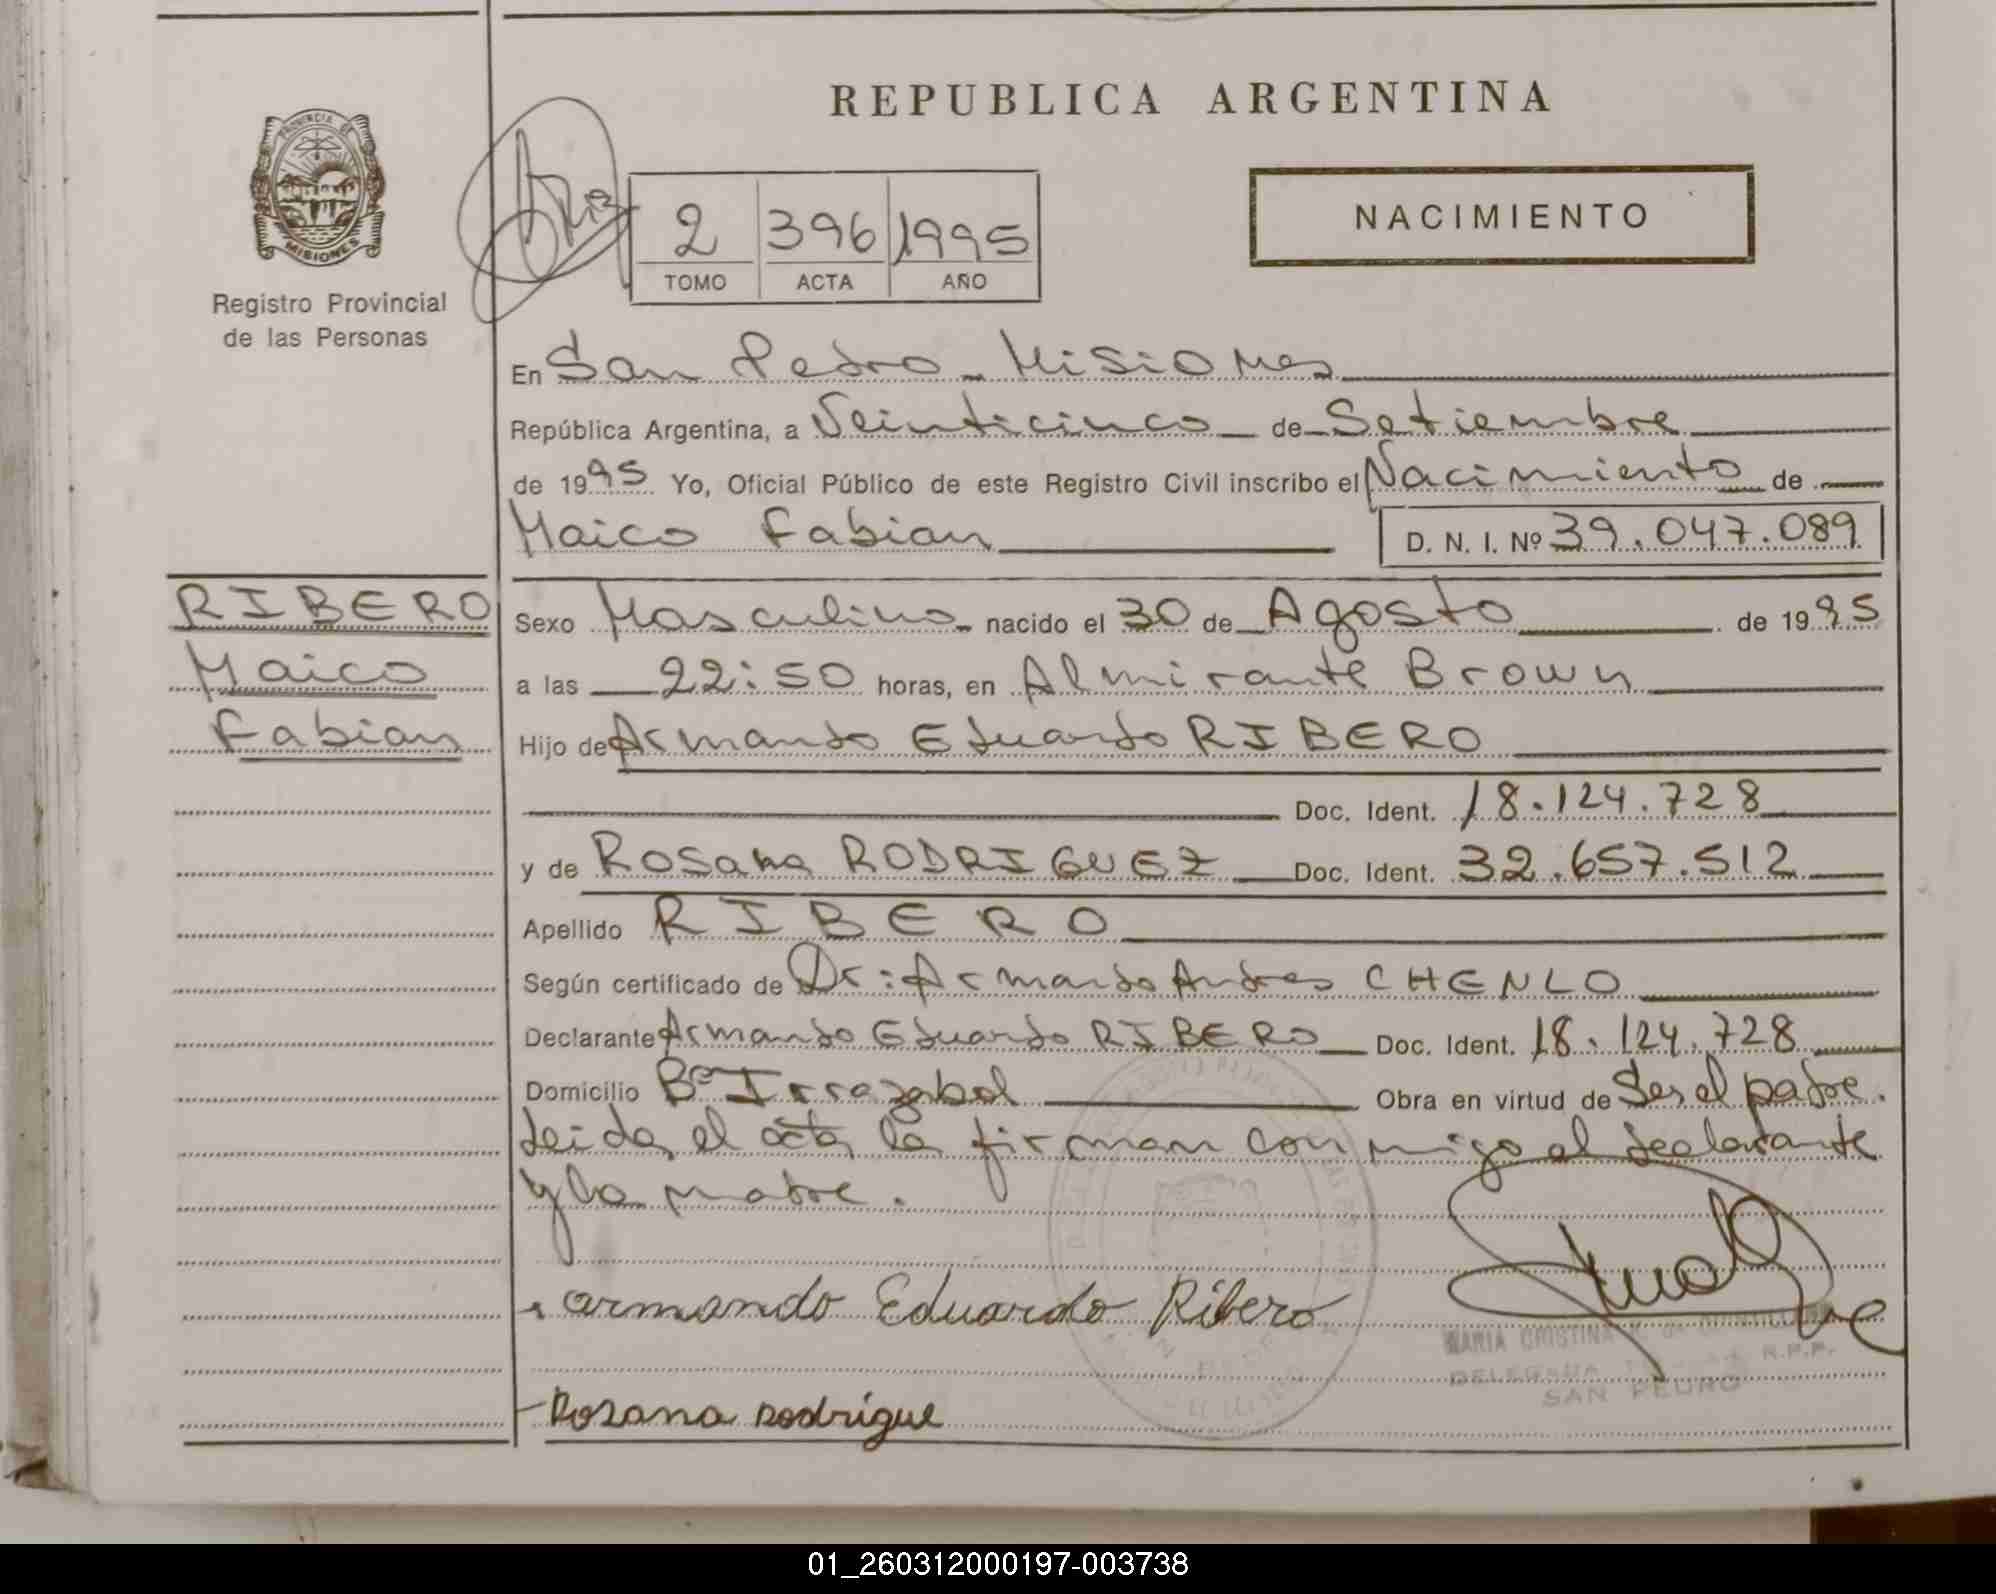 REPUBLICA ARGENTINA
PROVINCIA DE
MISIONES
Registro Provincial
de las Personas
2 396 1995
TOMO ACTA AÑO
NACIMIENTO
En San Pedro - Misiones
República Argentina, a Veinticinco de Setiembre
de 1995 Yo, Oficial Público de este Registro Civil inscribo el Nacimiento de
Maico Fabian D. N. I. Nº 39.047.089
RIBERO
Maico
Fabian
Sexo Masculino nacido el 30 de Agosto de 1995
a las 22:50 horas, en Almirante Brown
Hijo de Armando Eduardo RIBERO
Doc. Ident. 18.124.728
y de Rosana RODRIGUEZ Doc. Ident. 32.657.512
Apellido RIBERO
Según certificado de Dr: Armando Andres CHENLO
Declarante Armando Eduardo RIBERO Doc. Ident. 18.124.728
Domicilio Bº Irrazabal Obra en virtud de Ser el padre.
Leida el acta la firman conmigo el declarante
y la madre.
Armando Eduardo Ribero
MARIA CRISTINA
DELEGADA R.P.P.
SAN PEDRO
Rosana Rodrigue
01_260312000197-003738